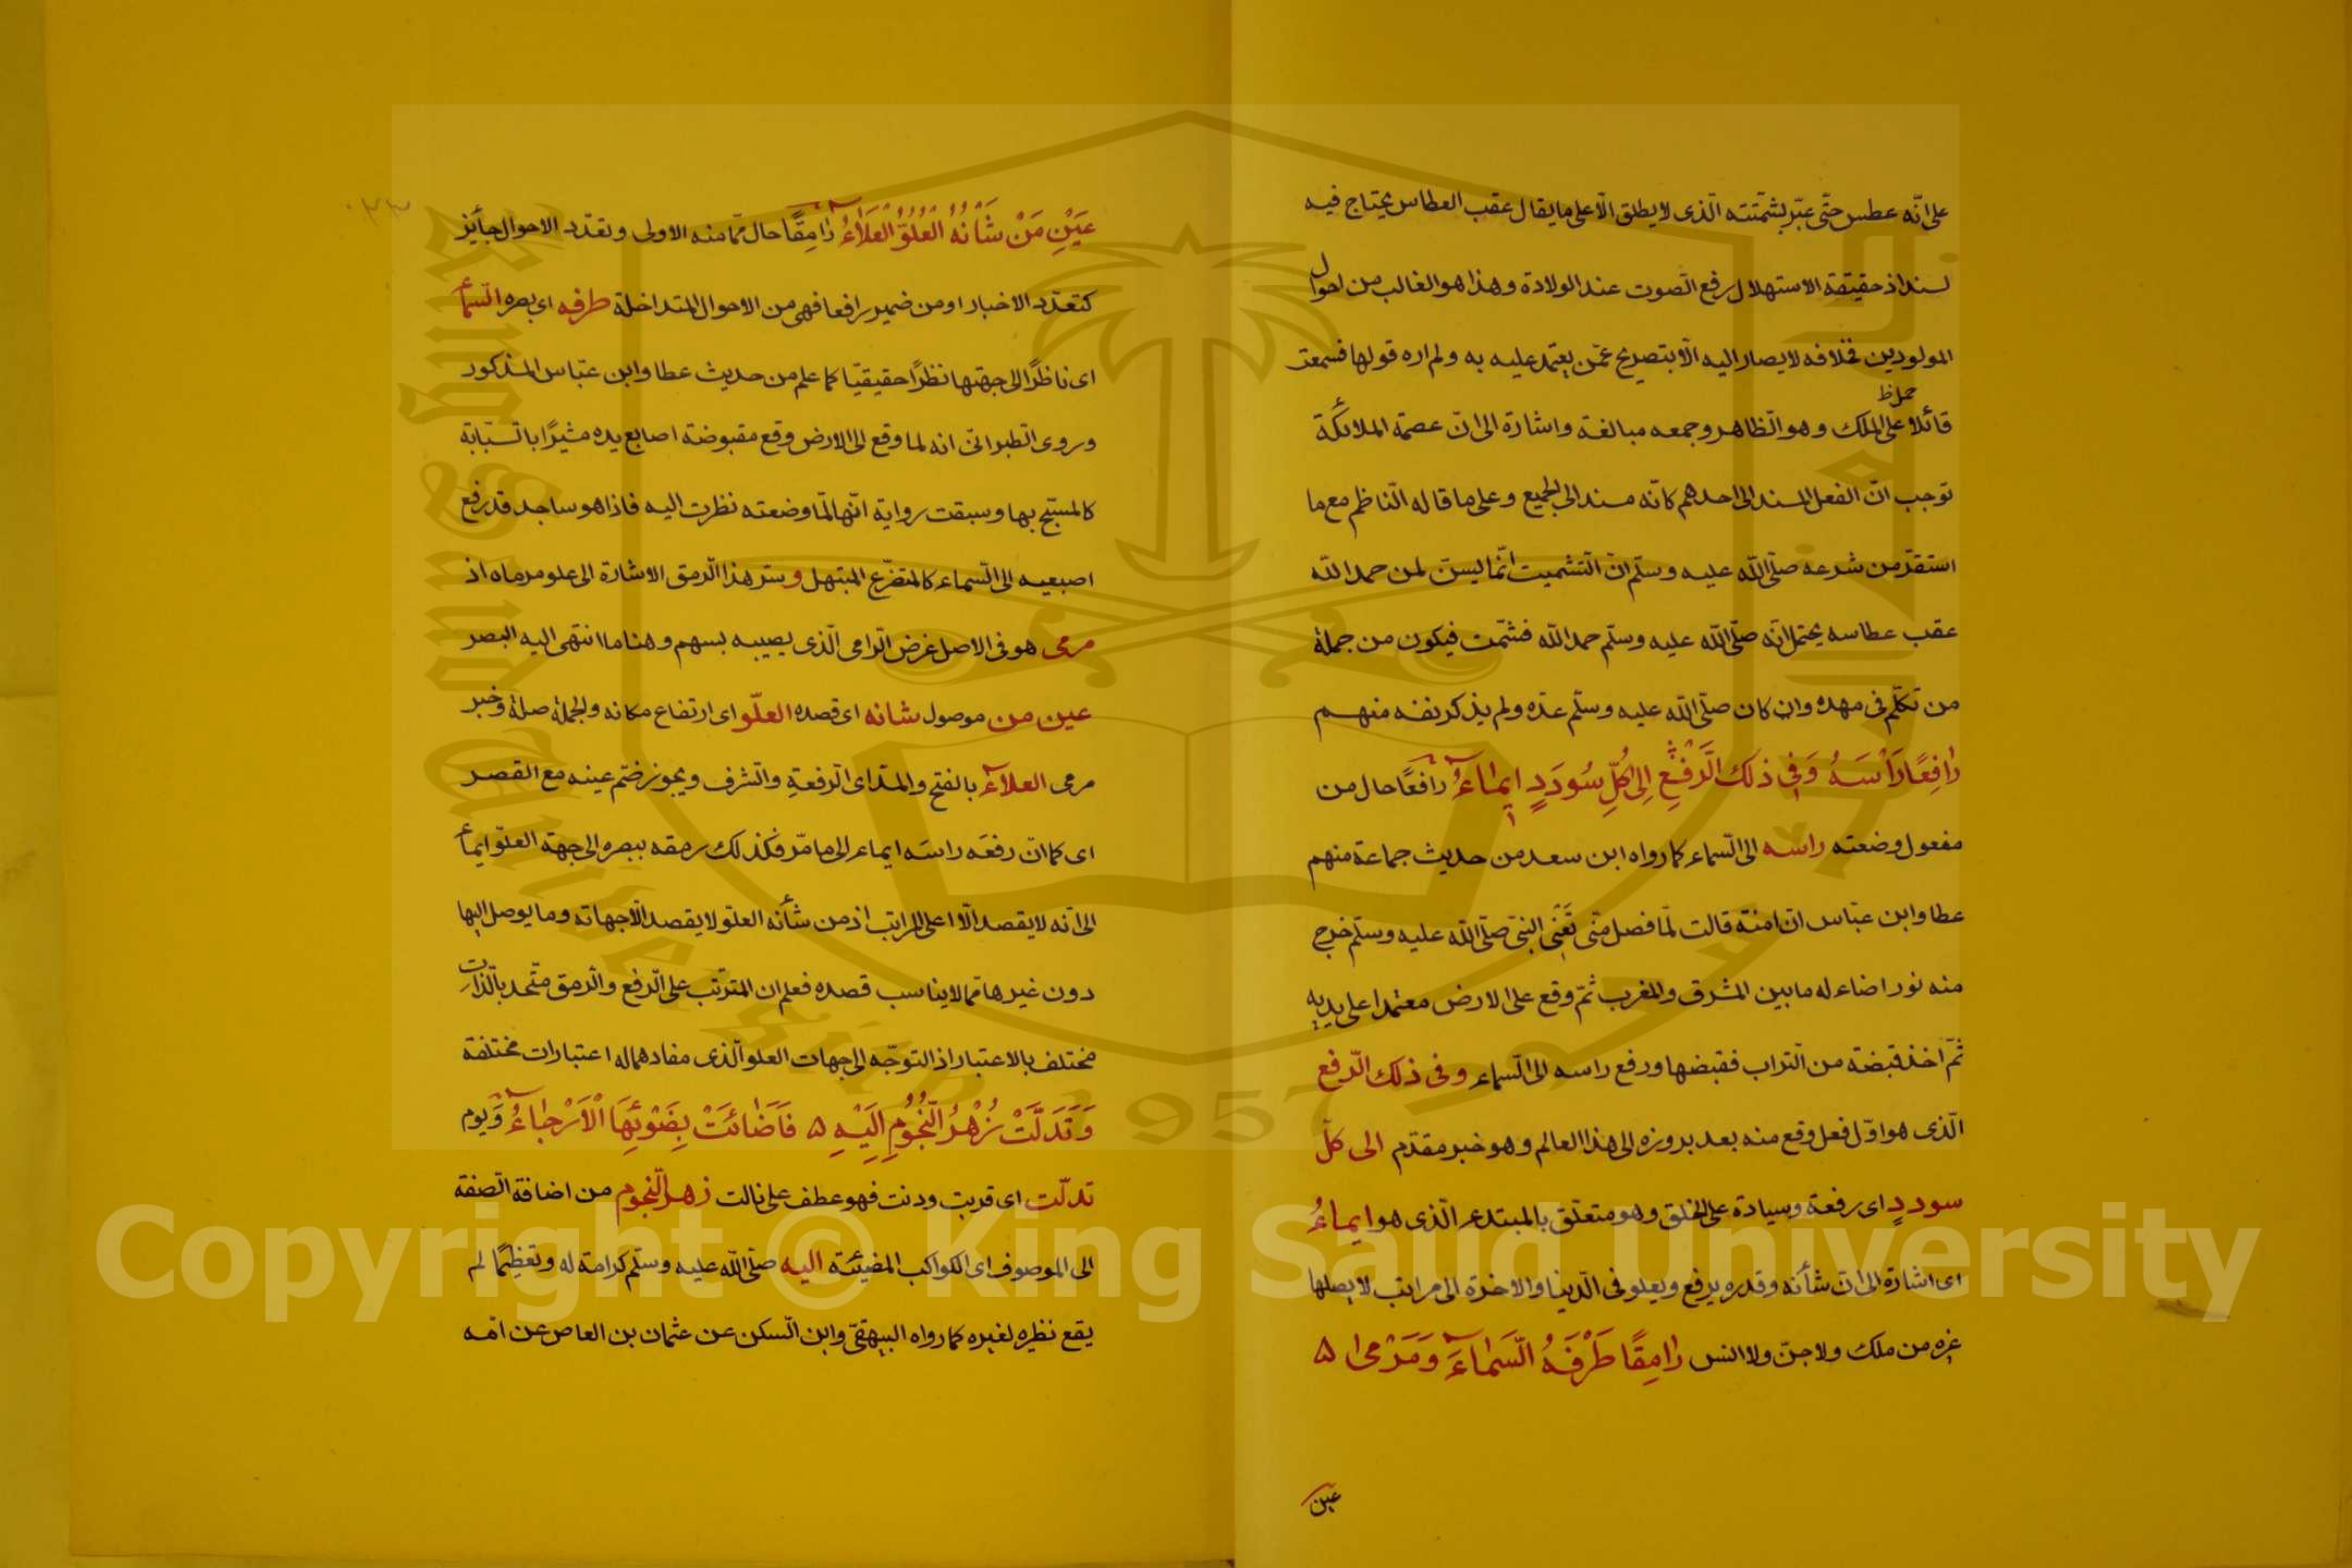 على انّه عطس حتّى عبّر بشمتته الّذى لا يطلق الّا على ما يقال عقب العطاس يحتاج فيه
لسند اذ حقيقة الاستهلال رفع الصّوت عند الولادة وهذا هو الغالب من احوال
المولودين فخلافه لا يصار اليه الّا بتصريح عمّن يعتمد عليه به ولم اره قولها فسمعت
حمل ظ
قائلا على الملك وهو الظّاهر وجمعه مبالغة واشارة الى انّ عصمة الملائكة
توجب انّ الفعل المسند الى احدهم كانّه مسند الى الجميع وعلى ما قاله النّاظم مع ما
استقرّ من شرعه صلّى اللّه عليه وسلّم انّ التّشميت انّما ليسنّ لمن حمد اللّه
عقب عطاسه يحتمل انّه صلّى اللّه عليه وسلّم حمد اللّه فشمّت فيكون من جملة
من تكلّم فى مهده وان كان صلّى اللّه عليه وسلّم عدّه ولم يذكر نفسه منهم
رَافِعًا رَأْسَهُ وَفِى ذٰلِكَ الرَّفْعِ اِلٰى كُلِّ سُودَدٍ اِيمَاءُ رافعًا حال من
مفعول وضعته راسه الى السّماء كما رواه ابن سعد من حديث جماعة منهم
عطا وابن عبّاس انّ امنة قالت لمّا فصل منّى تَعْنِى النبىّ صلّى اللّه عليه وسلّم خرج
منه نور اضاء له ما بين المشرق والمغرب ثمّ وقع على الارض معتمدا على يديه
ثمّ اخذ قبضة من التّراب فقبضها ورفع راسه الى السّماء وفى ذلك الرّفع
الّذى هو اوّل فعل وقع منه بعد بروزه الى هذا العالم وهو خبر مقدّم الى كلّ
سوددٍ اى رفعة وسيادة على الخلق وهو متعلّق بالمبتدء الّذى هو ايماءُ
اى اشارة الى انّ شأنه وقدره يرفع ويعلو فى الدّنيا والاخرة الى مراتب لا يصلها
غيره من ملك ولا جنّ ولا انس رَامِقًا طَرْفُهُ السَّمَاءَ وَمَرْمٰى ه
عين
عَيْنِ مَنْ شَأْنُهُ الْعُلُوُّ الْعَلَاءُ رَامِقًا حال ممّا منه الاولى وتعدّد الاحوال جائز
كتعدّد الاخبار او من ضمير رافعا فهى من الاحوال المتداخلة طرفه اى بصره السّماء
اى ناظرًا الى جهتها نظرًا حقيقيّا كما علم من حديث عطا وابن عبّاس المذكور
وروى الطبرانى انه لما وقع الى الارض وقع مقبوضة اصابع يده مشيرًا بالسّبّابة
كالمسبّح بها وسبقت رواية انّها لمّا وضعته نظرت اليه فاذا هو ساجد قد رفع
اصبعيه الى السّماء كالمتضرّع المبتهل وسرّ هذا الرّمق الاشارة الى علو مرماه اذ
مرمى هو فى الاصل غرض الرّامى الّذى يصيبه بسهم وهنا ما انتهى اليه البصر
عين من موصول شانه اى قصده العلّو اى ارتفاع مكانه والجملة صلة وخبر
مرمى العلاءُ بالفتح والمدّ اى الرّفعة والشّرف ويجوز ضمّ عينه مع القصر
اى كما انّ رفعَه راسَه ايماء الى ما مرّ فكذلك رمقه ببصره الى جهة العلّو ايماء
الى انّه لا يقصد الّا اعلى المراتب اذ من شأنه العلو لا يقصد الّا جهاته وما يوصل اليها
دون غيرها ممّا لا يناسب قصده فعلم ان المترتّب على الرّفع والرّمق متّحد بالذّات
مختلف بالاعتبار اذ التوجّه الى جهات العلو الّذى مفادهما له اعتبارات مختلفة
وَتَدَلَّتْ زُهْرُ النُّجُومِ اِلَيْهِ ه فَاَضَائَتْ بِضَوْئِهَا الْاَرْجَاءُ وَيوم
تدلّت اى قربت ودنت فهو عطف على نالت زهر النّجوم من اضافة الصّفة
الى الموصوف اى الكواكب المضيئة اليه صلّى اللّه عليه وسلّم كرامة له وتعظيمًا لم
يقع نظيره لغيره كما رواه البيهقىّ وابن السّكن عن عثمان بن العاص عن امّه
King Saud University
1957
Copyright © King Saud University